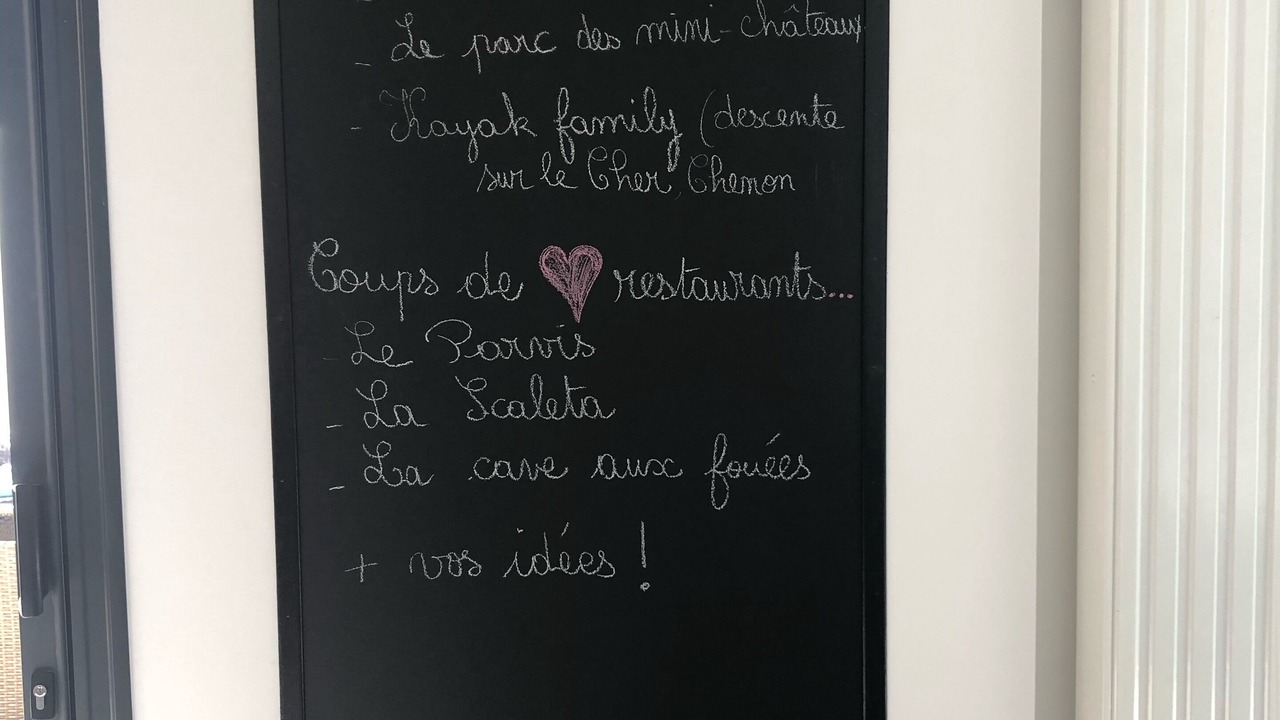 - Le parc des mini-châteaux
- Kayak family (descente
sur le Cher, Chenon
Coups de ♥ restaurants...
- Le Parvis
- La Scaleta
- La cave aux fouées
+ vos idées !